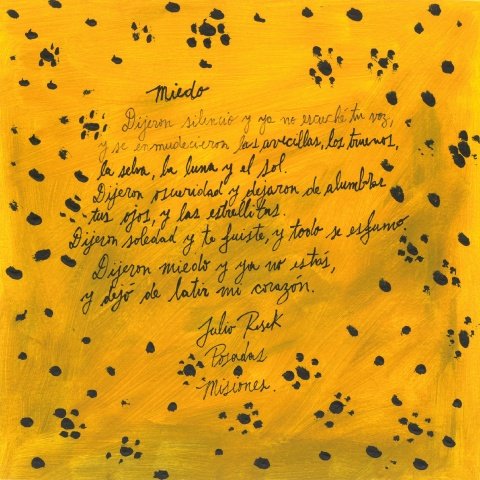 Miedo
Dijeron silencio y ya no escuché tu voz,
y se enmudecieron las avecillas, los truenos,
la selva, la luna y el sol.
Dijeron oscuridad y dejaron de alumbrar
tus ojos, y las estrellitas.
Dijeron soledad y te fuiste, y todo se esfumo.
Dijeron miedo y ya no estás,
y dejó de latir mi corazón.
Julio Resek
Posadas
Misiones.